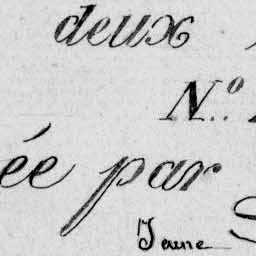 deux
N.º
ée par
Jaune